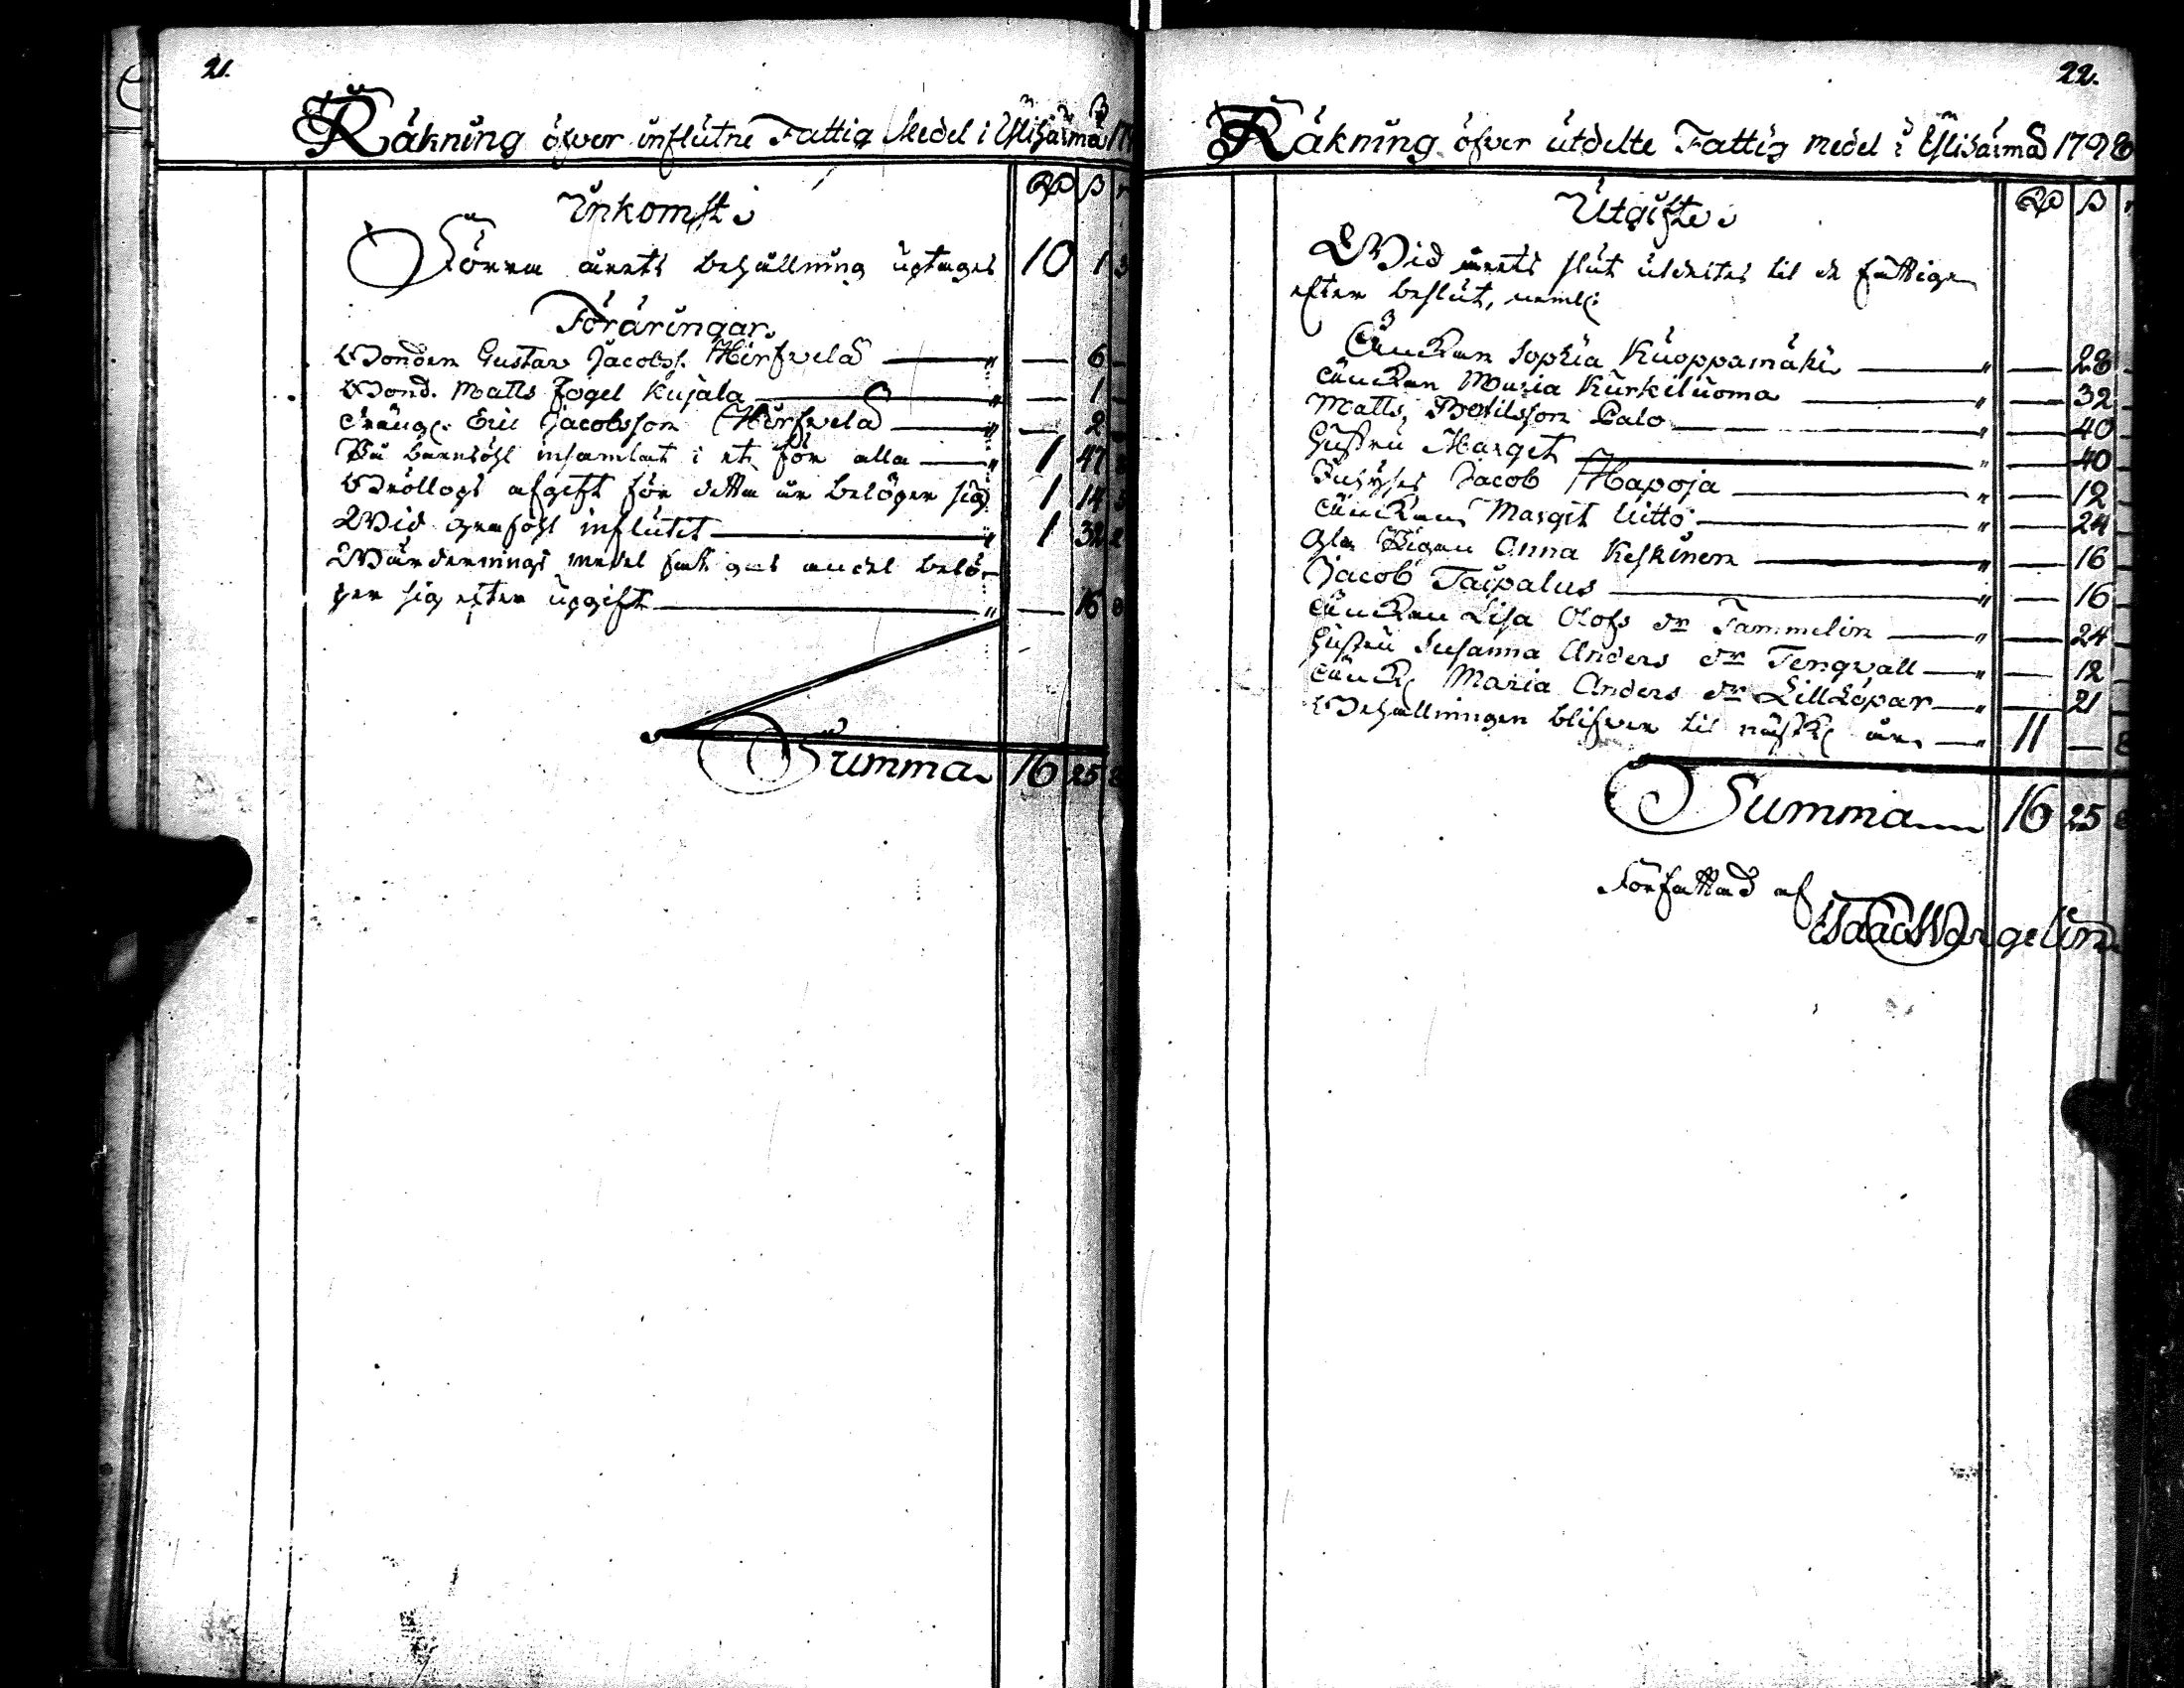 21.
Räkning öfver influtne Fattig Medel i Ylihärmä 179
Rd ß r
Inkomst.
Förra årets behållning uptages 10 1 3
Föräringar.
Bonden Gustav Jacobss. Hirfvelä — " — 6 —
Bond. Matts Fogel Kujala — " — 1 —
Dräng. Eric Jacobsson Hirfvelä — " — 2 —
På barnsöhl insamlat i et för alla — " 1 47 8
Bröllops afgift för detta år belöper sig 1 14 3
Wid grafföhl influtit — " 1 32 2
Wärderings medel fattigas andel belö-
per sig efter upgift — " — 16 8
Summa 16 25 8
22.
Räkning öfver utdelte Fattig medel i Ylihärmä 1798
Rd ß r
Utgifter
Wid årets slut utdeltes til de fattige
efter beslut, neml:
Änckan Sophia Kuoppamäki — " — 28 —
Änckan Maria Kurkiluoma — " — 32 —
Matts Bertilsson Palo — " — 40 —
Hustru Marget — " — 40 —
Inhyses Jacob Hapoja — " — 12 —
Änckan Margit Uitto — " — 24 —
Gla Pigan Anna Keskinen — " — 16 —
Jacob Taipalus — " — 16 —
Änckan Lisa Olofs dr Tammelin — " — 24 —
Hustru Susanna Anders dr Tengvall — " — 12 —
Änck. Maria Anders dr Lillköpar — " — 21 —
Behållningen blifver til nästk. år — " 11 — 8
Summa 16 25 8
Författad af
Isaac Wargelin